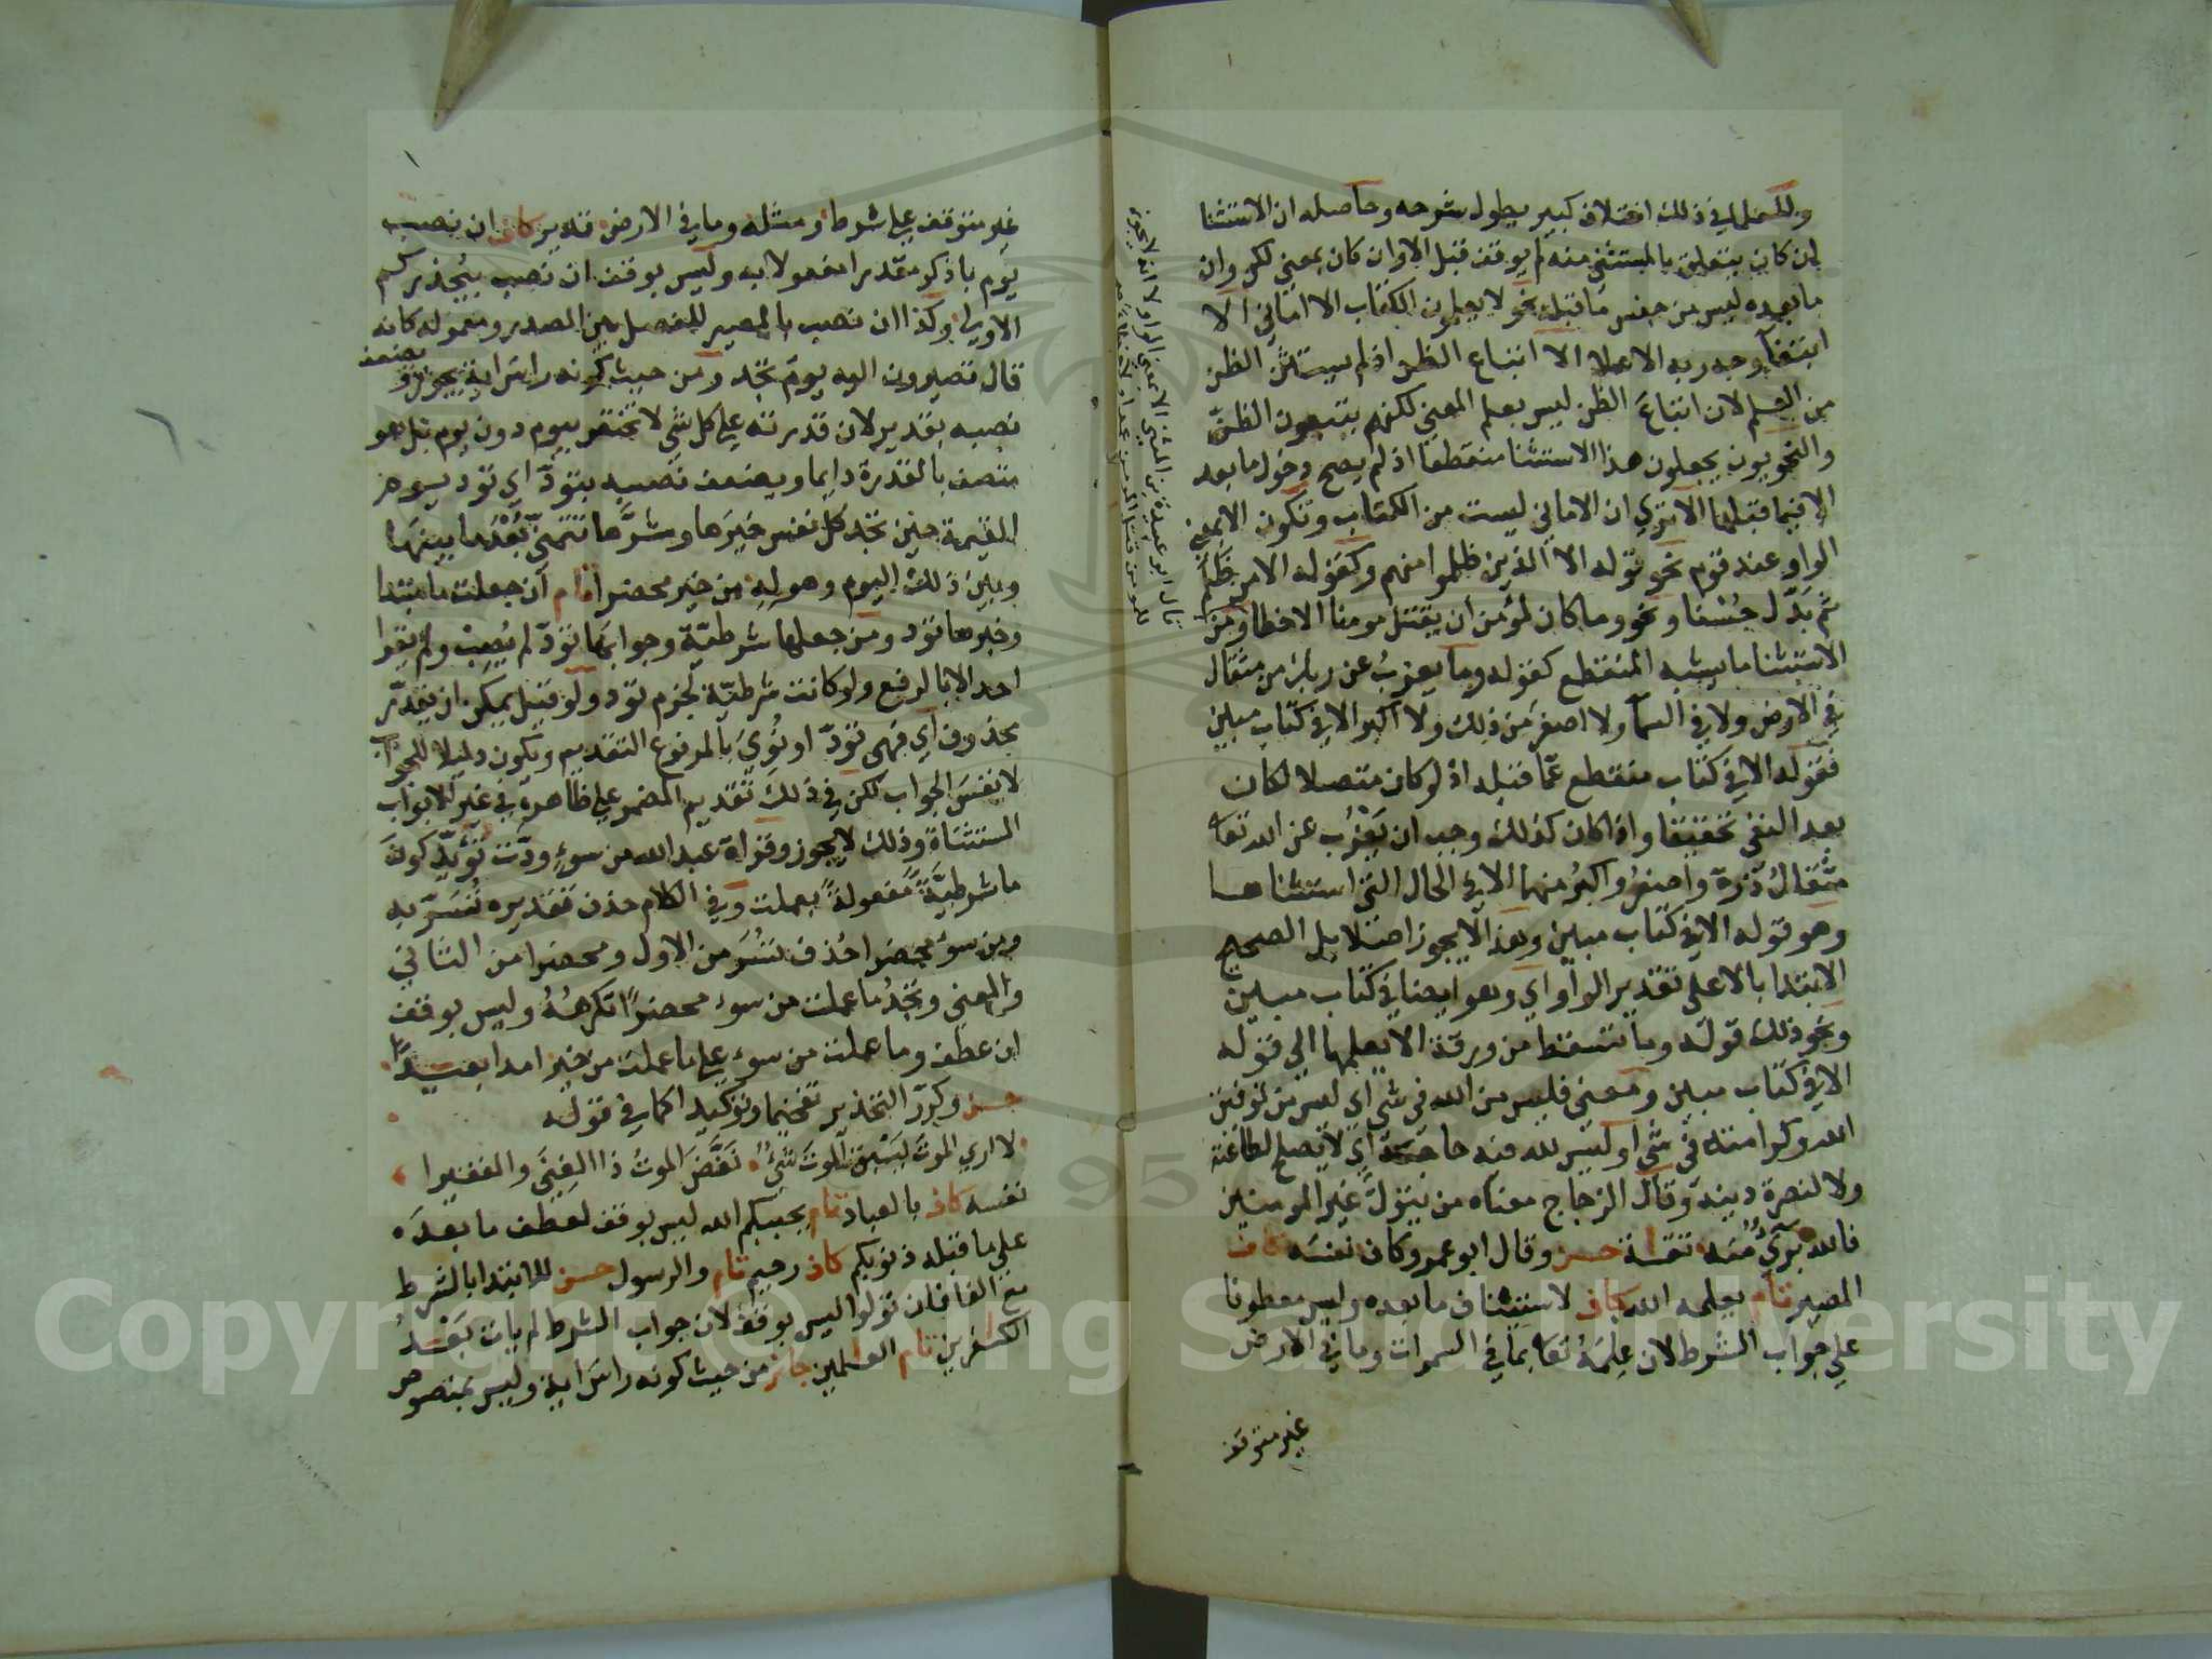 وللعلما في ذلك اختلاف كبير يطول شرحه وحاصله ان الاستثنا
ان كان يتعلق بالمستثني منه لم يوقف قبل الا وان كان بمعني لكن وان
ما بعده ليس من جنس ما قبله نحو لا يعلمون الكتاب الا اماني الا
ابتغآ وجه ربه الاعلا الا اتباع الظن اذ لم يستثن الظن
من العلم لان اتباعَ الظن ليس بعلم المعني لكنهم يتبعون الظنّ
والنحويون يجعلون هذا الاستثنا منقطعا اذ لم يصح دخول ما بعد
الا فيما قبلها الا تري ان الاماني ليست من الكتاب وتكون الا بمعني
الواو عند قوم نحو قوله الا الذين ظلموا منهم وكقوله الا من ظلم
ثم بَدَّل حُسْنا ونحو وما كان لمؤمن ان يقتل مومنا الا خطا ومن
الاستثنا ما يشبه المنقطع كقوله وما يعزبُ عن ربك من مثقال
في الارض ولا في السمآ ولا اصغر من ذلك ولا اكبر الا في كتاب مبين
فقوله الا في كتاب منقطع عمّا قبله اذ لو كان متصلا لكان
بعد النفي تحقيقا واذا كان كذلك وجب ان يَعْزُب عن الله تعا
مثقالُ ذرة واصغرُ واكبرُ منهما الا في الحال التي استثناها
وهو قوله الا في كتاب مبين وهذا لا يجوز اصلا بل الصحيح
الابتدا بالا علي تقدير الواو اي وهو ايضا في كتاب مبين
ونحو ذلك قوله وما تسقط من ورقة الا يعلمها الي قوله
الا في كتاب مبين ومعني فليس من الله في شي اي ليس من توفيق
الله وكرامته في شي او ليس لله فيه حاجة اي لا يصلح لطاعته
ولا لنصرة دينه وقال الزجاج معناه من يتولّ غير المومنين
فالله بريٌ منه تقاة حسن وقال ابو عمرو كاف نفسَه كاف
المصير تام يعلمه الله كاف لاستيناف ما بعده وليس معطوفا
علي جواب الشرط لان عِلمَهُ تعا بما في السموات وما في الارض
غير متوقف
قال ابو عبيدة بن المثني الا بمعني الواو لانه لا يجوز
غير متوقف علي شرط ومثله وما في الارض قدير كاف ان نصب
يوم باذكر مقدرا مفعولا به وليس بوقف ان نصب بيُحذركم
الاولي وكذا ان نصب بالمصير للفصل بين المصدر ومعموله كانه
قال تصيرون اليه يوم تجد ومن حيث كونه راس اية يجوز ويضعف
نصبه بقدير لان قدرته علي كل شي لا تختص بيوم دون يوم بل هو
متصف بالقدرة دايما ويضعف نصبه بتودّ اي تود يوم
القيمة حين تجد كل نفس خيرَها وشرَّها تتمنّي بُعْدَ ما بينها
وبين ذلك اليوم وهوله من خير محضرا تام ان جعلت ما مبتدا
وخبرها تود ومن جعلها شرطيّة وجوابها تودّ لم يُصِبْ ولم يقرا
احد الا بالرفع ولو كانت شرطيّة لجزم تود ولو قيل يمكن ان يقدّر
محذوف اي فهي تودّ او نُوِيَ بالمرفوع التقديم ويكون دليلا للجواب
لا نفسَ الجواب لكن في ذلك تقديم المضمر علي ظاهره في غير الابواب
المستثناة وذلك لا يجوز وقراة عبد الله من سوءٍ ودّت تؤيّد كون
ما شرطيّةً مفعولةً بعملت وفي الكلام حذف تقديره تُسَرّ به
ومن سوء محضرا حُذف تُسَرّ من الاول ومحضرا من الثاني
والمعني وتجدُ ما عملت من سوء محضراً تكرهُهُ وليس بوقف
ان عطف وما عملت من سوء علي ما عملت من خير امدا بعيداً
حسن وكرّر التحذير تفخيما وتوكيدا كما في قوله
لا اري الموتَ يَسْبِق الموتَ شَيْءٌ نَغَّصَ الموتُ ذا الغِنَي والفقيرا
نفسه كاف بالعباد تام يحببكم الله ليس بوقف لعطف ما بعدَه
علي ما قبله ذنوبكم كاف رحيم تام والرسول حسن للابتدا بالشرط
مع الفا فان تولوا ليس بوقف لان جواب الشرط لم يات بَعْدُ
الكفرين تام العلمين جائز من حيث كونه راس اية وليس بمنصوص